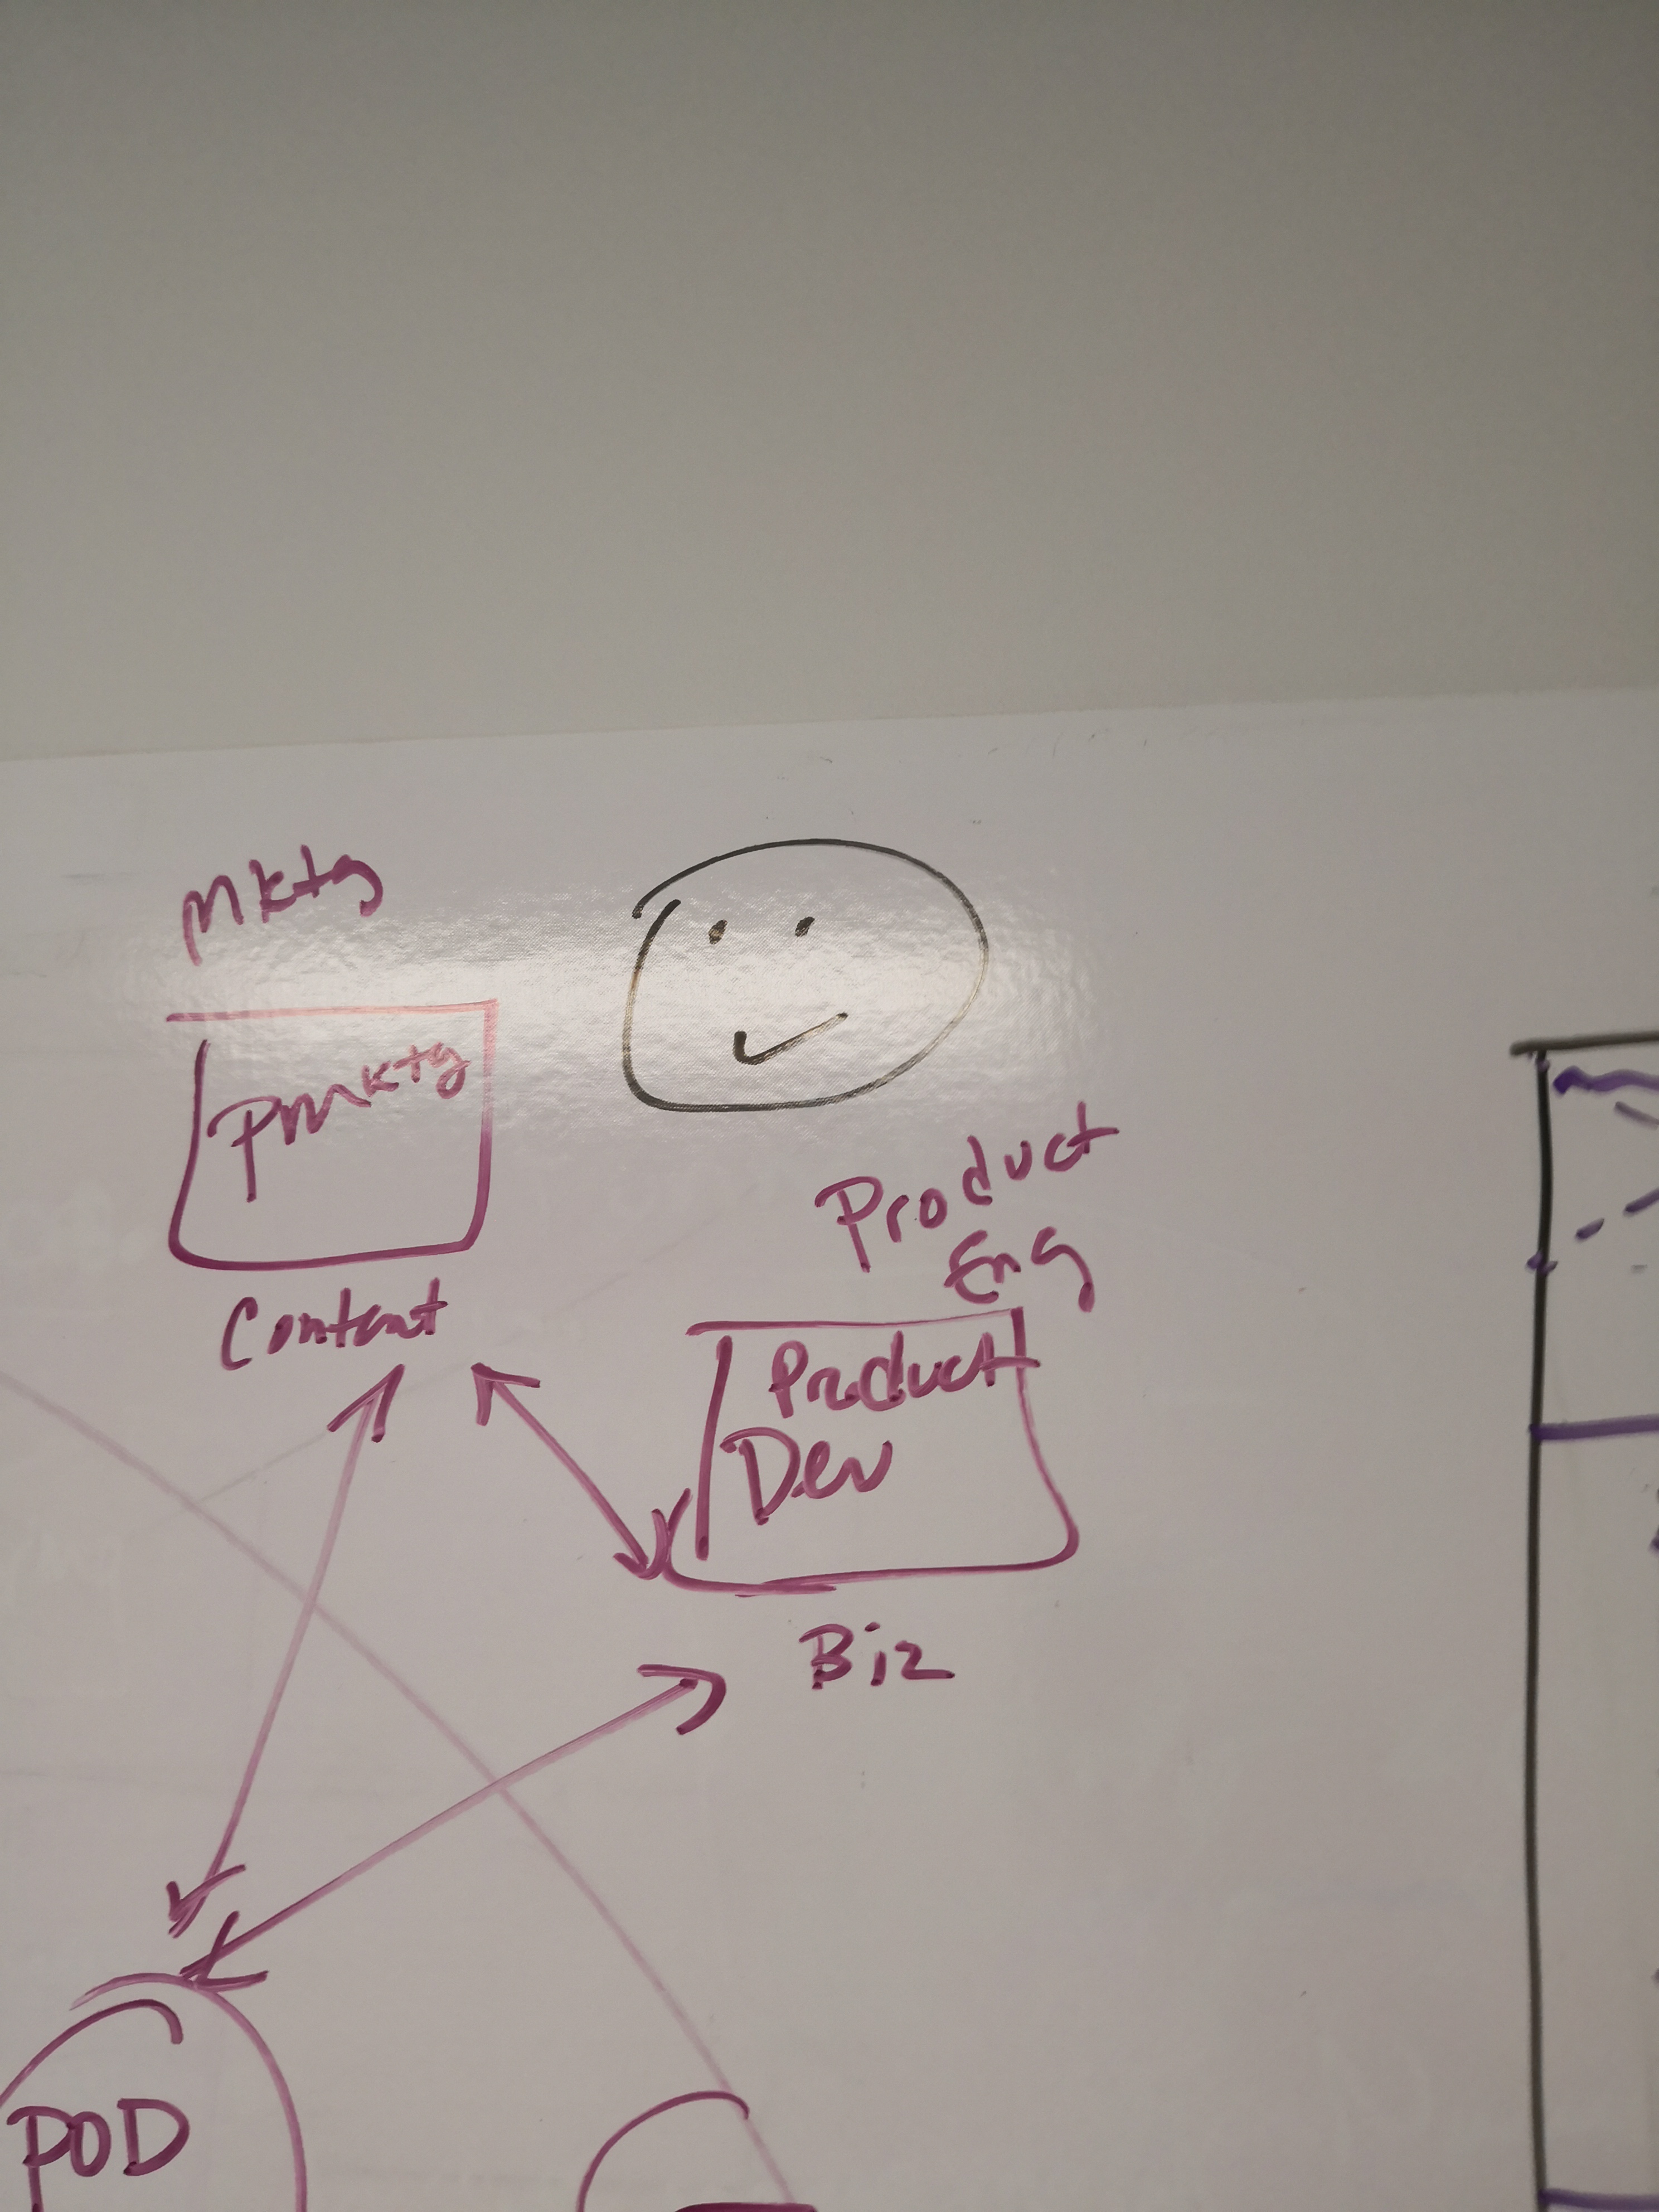 Mktg
PMktg
Content
Product
Eng
Product
Dev
Biz
POD